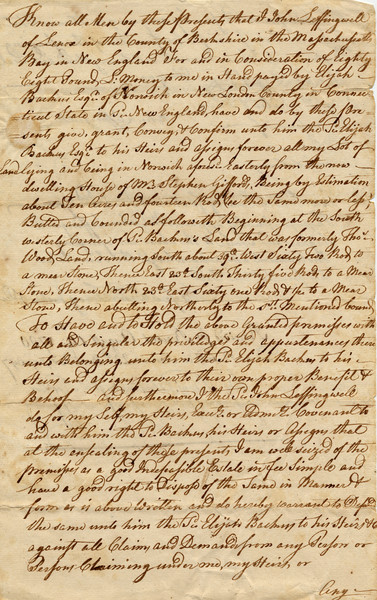 Know all Men by these Presents that I John Leffingwell
of Lenox in the County of Berkshire in the Massachusetts
Bay in New England For and in Consideration of Eighty
Eight Pound, L. Money to me in Hand payed by Elijah
Backus Esqr. of Norwich in New London County in Connec-
ticut State in Sd. New England, have and do by these Pres-
ents give, grant, Convey, & Confirm unto him the Sd. Elijah
Backus Esqr. to his Heirs and assigns forever all my Lot of
Land lying and being in Norwich aforesd. Easterly from the now
dwelling House of Mr. Stephen Gifford, Being by Estimation
about Ten Acres and fourteen Rod, be the Same more or less,
Butted and Bounded as followeth Beginning at the South
westerly Corner of Sd. Backus's Land that was formerly Thos.
Wood Land, running South about West Sixty two Rod to
a mear Stone, Thence East 23d. South Thirty five Rod to a Mear
Stone, Thence North 23d. East Sixty one Rod & to a Mear
Stone, Thence abutting Northerly to the Mentioned bound,
To Have and to Hold the above Granted premises with
all and Singular the priviledges and appurtenances there
unto Belonging unto him the Sd. Elijah Backus to his
Heirs and assigns forever to their own proper Benefit &
Behoof and furthermore I the Sd. John Leffingwell
do for my Self, my Heirs, Execr. or Admrs. Covenant to
and with him the Sd. Backus, his Heirs or Assigns that
at the ensealing of these presents I am well seized of the
premises as a good Indefesible Estate in Fee Simple and
have a good right to dispose of the Same in Manner &
form as is above Written and do hereby warrant to Defend
the same unto him the Sd. Elijah Backus to his Heirs &c
against all Claims and Demands from any Person or
Persons Claiming under me, my Heirs or
Any